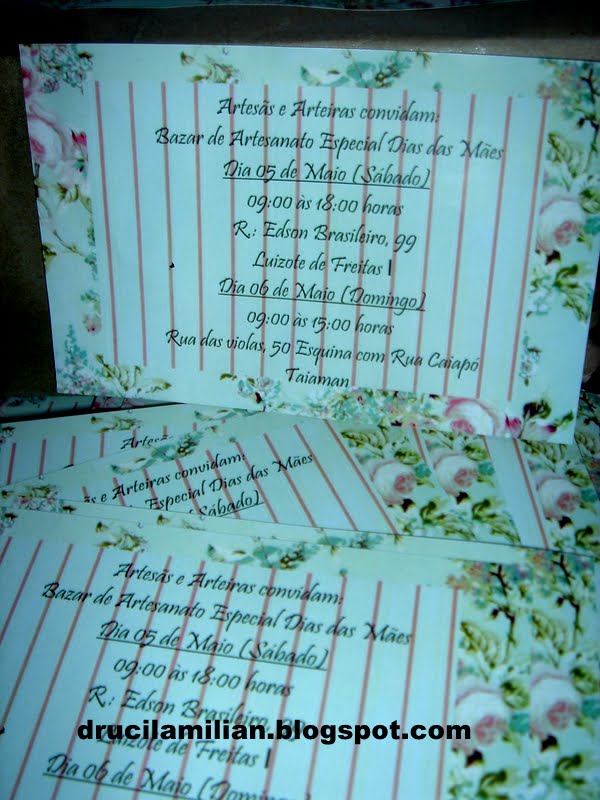 Artesãs e Arteiras convidam:
Bazar de Artesanato Especial Dias das Mães
Dia 05 de Maio (Sábado)
09:00 às 18:00 horas
R.: Edson Brasileiro, 99
Luizote de Freitas I
Dia 06 de Maio (Domingo)
09:00 às 15:00 horas
Rua das violas, 50 Esquina com Rua Caiapó
Taiaman
Artesã
sãs e Arteiras convidam:
Especial Dias das Mães
(Sábado)
Artesãs e Arteiras convidam:
Bazar de Artesanato Especial Dias das Mães
Dia 05 de Maio (Sábado)
09:00 às 18:00 horas
R.: Edson Brasileiro, 99
drucilamilian.blogspot.com
Luizote de Freitas I
Dia 06 de Maio (Domingo)